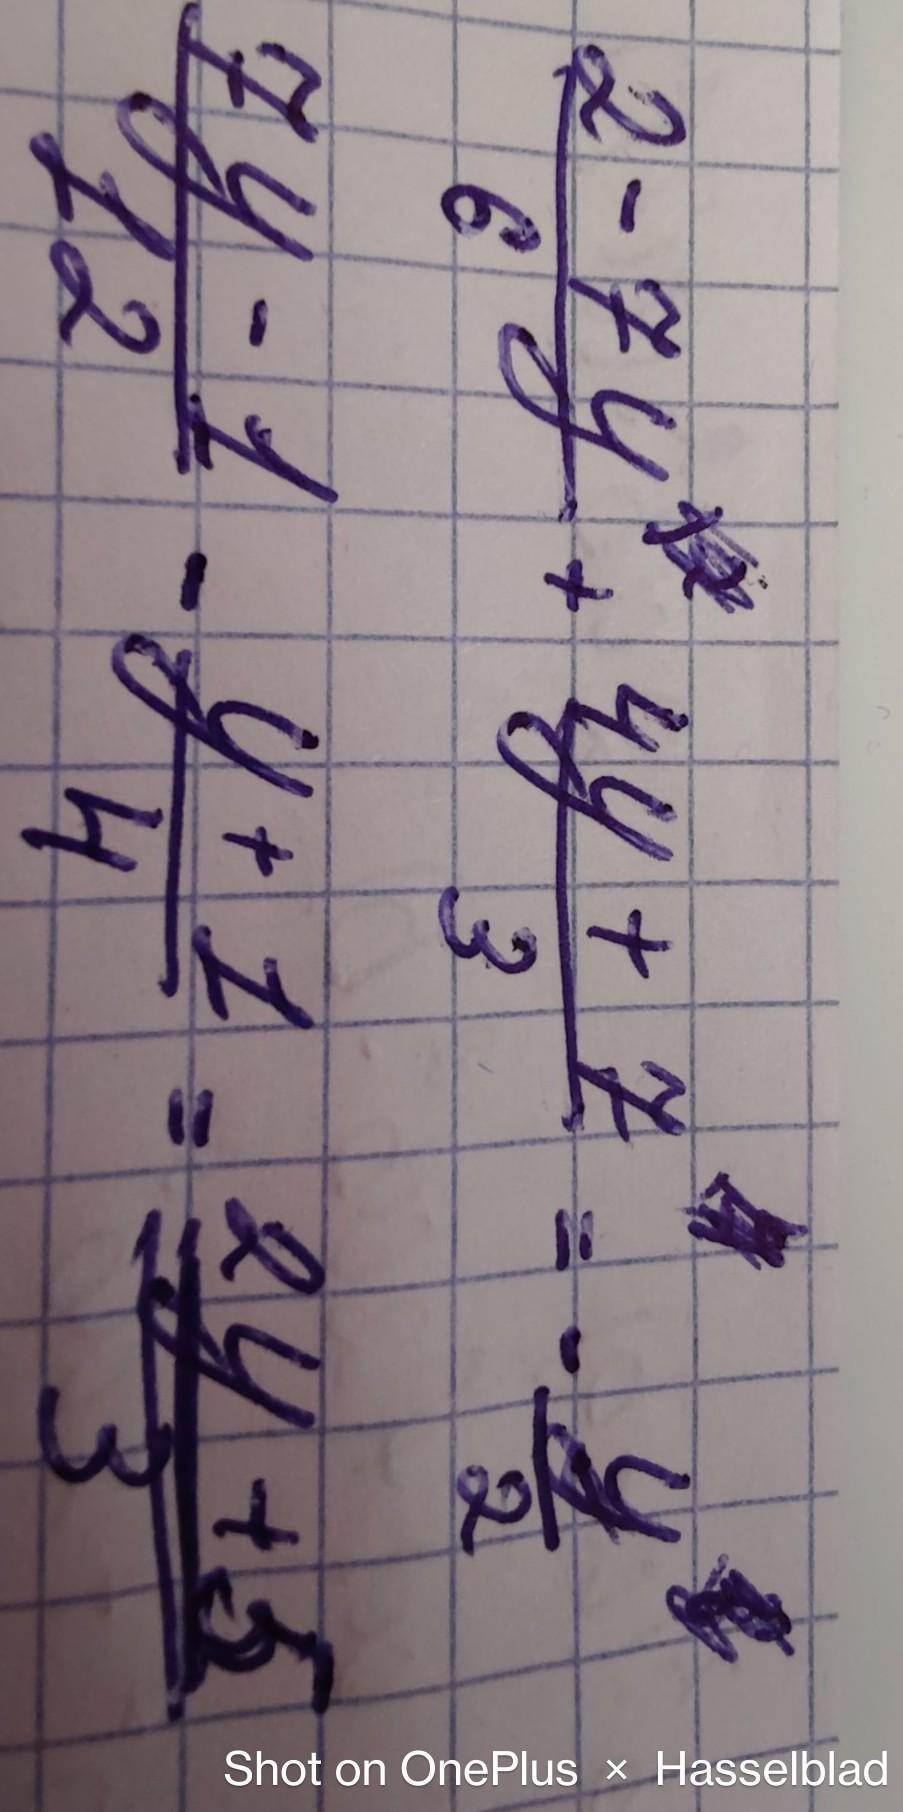 (2 - 7y)/6 + (4y + 7)/3 = - y/2
(7y - 1)/12 - (y + 1)/4 = (2y + 5)/3
Shot on OnePlus × Hasselblad